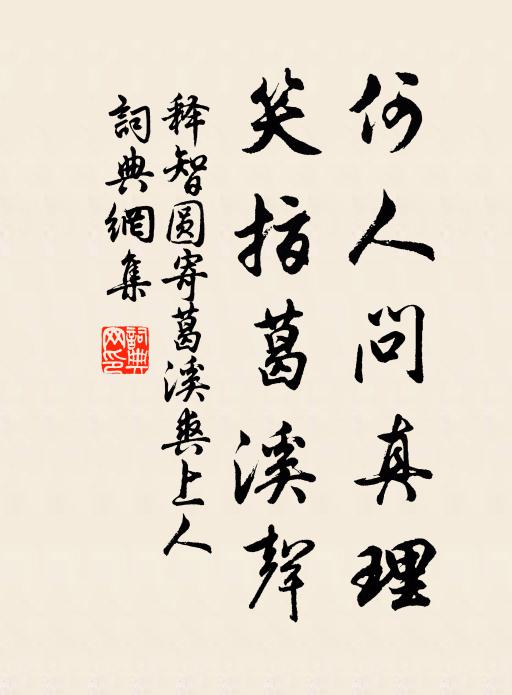 何人问真理
笑指葛溪聲
释智圆寄葛溪爽上人
詞典網集
詞典
网印